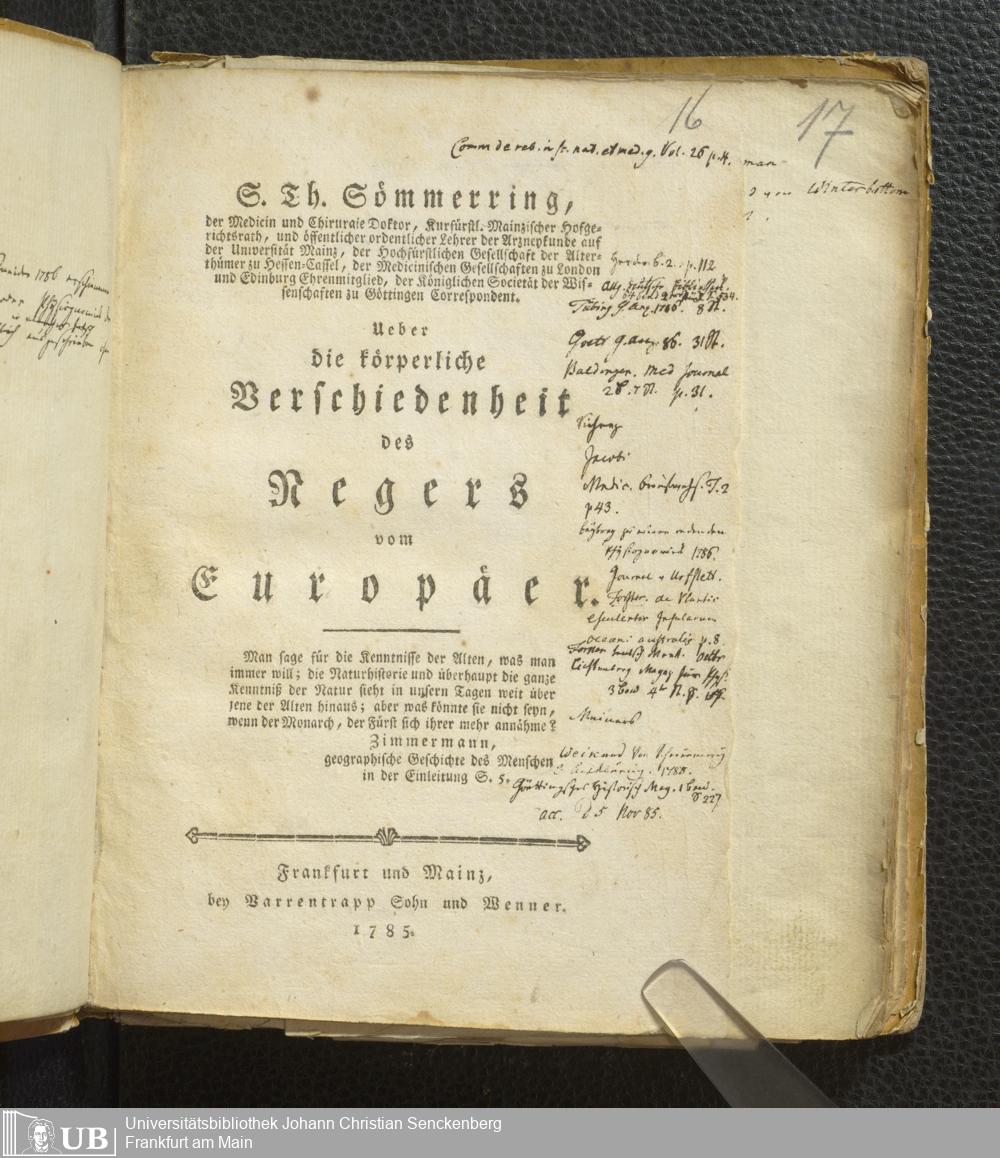 16
17
Comm de reb. in sc. nat. et med. g. Vol. 26 p. 4.
Winterbottom
S. Th. Sömmerring,
der Medicin und Chirurgie Doktor, Kurfürstl. Mainzischer Hofge-
richtsrath, und öffentlicher ordentlicher Lehrer der Arzneykunde auf
der Universität Mainz, der Hochfürstlichen Gesellschaft der Alter-
thümer zu Hessen-Cassel, der Medicinischen Gesellschaften zu London
und Edinburg Ehrenmitglied, der Königlichen Societät der Wis-
senschaften zu Göttingen Correspondent.
Ueber
die körperliche
Verschiedenheit
des
Negers
vom
Europäer.
Man sage für die Kenntnisse der Alten, was man
immer will; die Naturhistorie und überhaupt die ganze
Kenntniß der Natur sieht in unsern Tagen weit über
jene der Alten hinaus; aber was könnte sie nicht seyn,
wenn der Monarch, der Fürst sich ihrer mehr annähme?
Zimmermann,
geographische Geschichte des Menschen
in der Einleitung S. 5.
p. 112
Tübing g. anz. 1786. 8 St.
Goett g. anz. 86. 31 St.
Baldinger. Med Journal
p. 31.
Jacobi
p 43.
1786.
Forster. de Plantis
esculentis Insularum
oceani australis p. 8.
Lichtenberg Magaz
Meiners
1788.
Göttingsches Historisch Mag. 1 Band.
S 227
acc. d 5 Nov 85.
Frankfurt und Mainz,
bey Varrentrapp Sohn und Wenner.
1785.
UB
Universitätsbibliothek Johann Christian Senckenberg
Frankfurt am Main